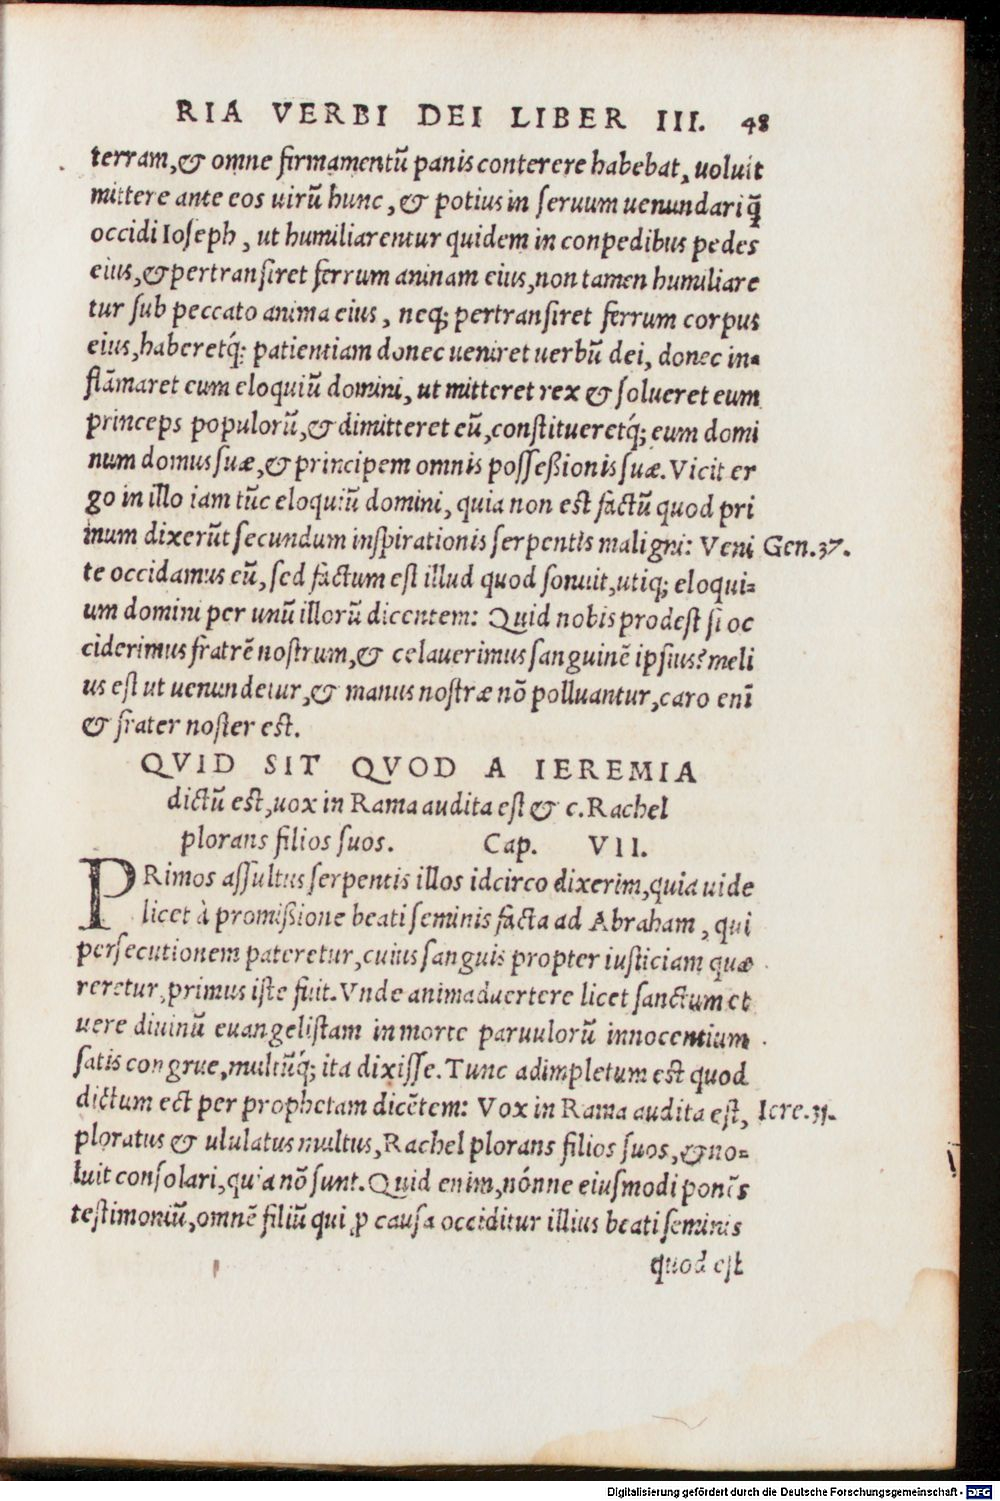 RIA VERBI DEI LIBER III. 48
terram,& omne firmamentũ panis conterere habebat, uoluit
mittere ante eos uirũ hunc, & potius in seruum uenundari q̃
occidi Ioseph, ut humiliarentur quidem in conpedibus pedes
eius,& pertransiret ferrum animam eius, non tamen humiliare
tur sub peccato anima eius, neq; pertransiret ferrum corpus
eius, haberetq́; patientiam donec ueniret uerbũ dei, donec in-
flãmaret eum eloquiũ domini, ut mitteret rex & solueret eum
princeps populorũ,& dimitteret eũ, constitueretq́; eum domi
num domus suæ,& principem omnis posseßionis suæ. Vicit er
go in illo iam tũc eloquiũ domini, quia non est factũ quod pri
mum dixerũt secundum inspirationis serpentis maligni: Veni Gen.37.
te occidamus eũ, sed factum est illud quod sonuit, utiq; eloqui-
um domini per unũ illorũ dicentem: Quid nobis prodest si oc
ciderimus fratrẽ nostrum,& celauerimus sanguinẽ ipsius? meli
us est ut uenundetur,& manus nostræ nõ polluantur, caro enĩ
& frater noster est.
QVID SIT QVOD A IEREMIA
dictũ est, uox in Rama audita est & c. Rachel
plorans filios suos. Cap. VII.
PRimos assultus serpentis illos idcirco dixerim, quia uide
licet à promißione beati seminis facta ad Abraham, qui
persecutionem pateretur, cuius sanguis propter iusticiam quæ
reretur, primus iste fuit. Vnde animaduertere licet sanctum et
uere diuinũ euangelistam in morte paruulorũ innocentium
satis congrue, multũq́; ita dixisse. Tunc adimpletum est quod
dictum ect per prophetam dicẽtem: Vox in Rama audita est, Iere.31.
ploratus & ululatus multus, Rachel plorans filios suos,& no-
luit consolari, quia nõ sunt. Quid enim, nónne eiusmodi ponẽs
testimoniũ, omnẽ filiũ qui ꝓ causa occiditur illius beati seminis
quod est
Digitalisierung gefördert durch die Deutsche Forschungsgemeinschaft - DFG